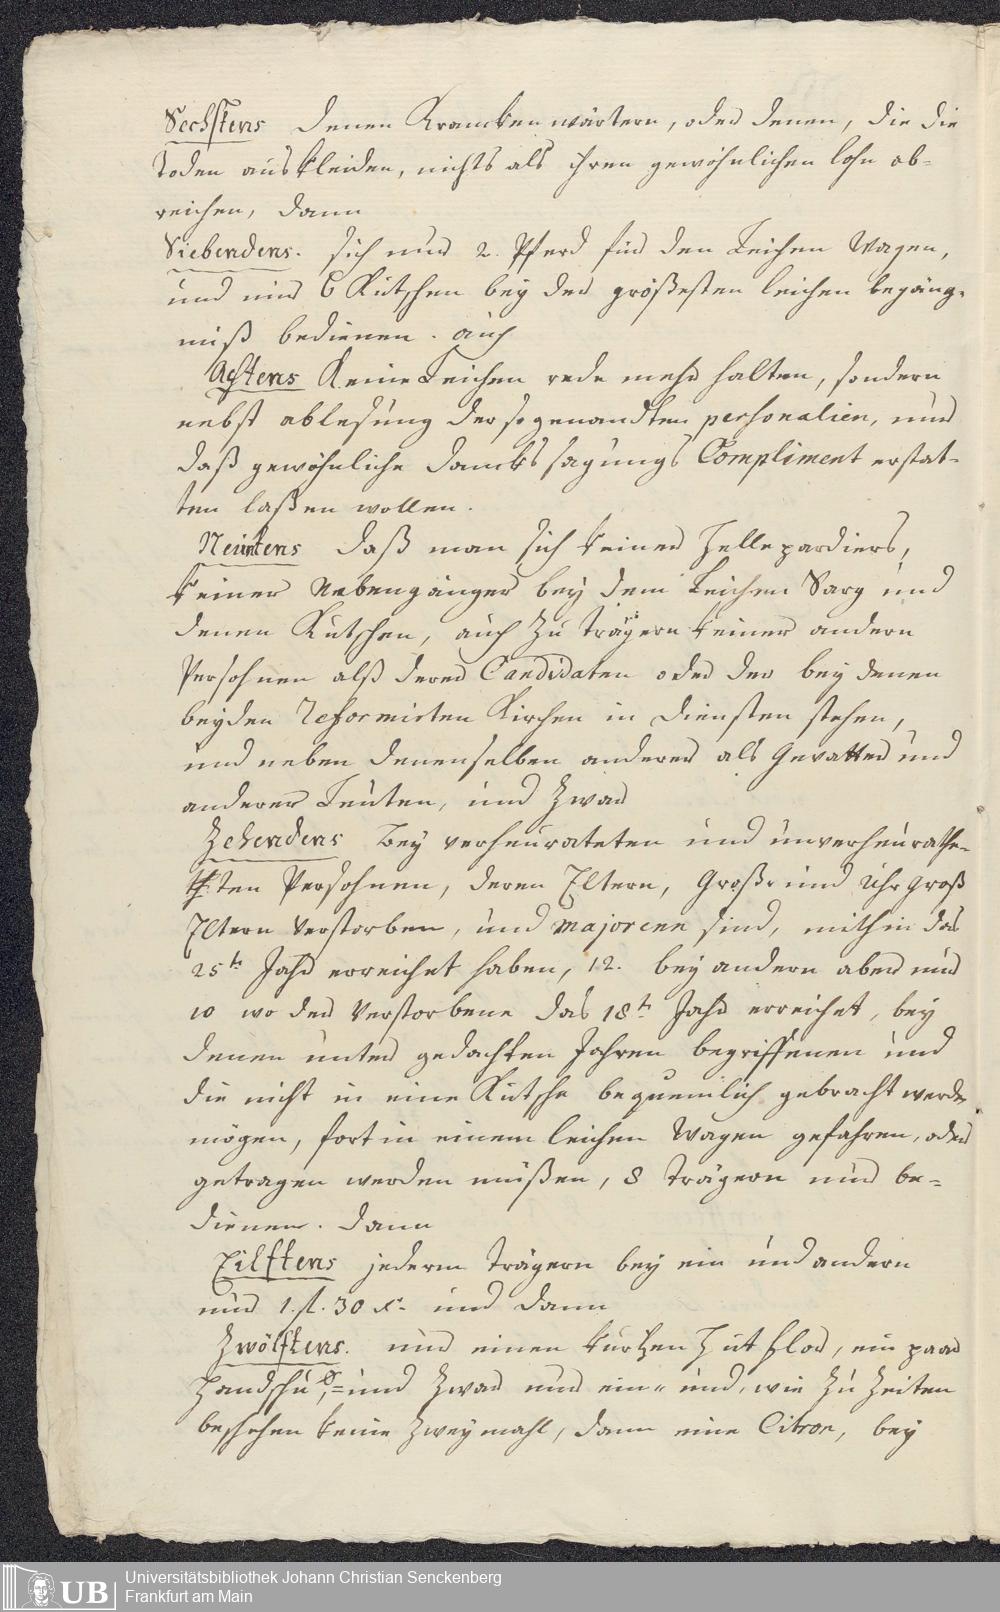 Sechstens denen Krancken wärtern, oder denen, die die
Toden auskleiden, nichts als ihren gewöhnlichen lohn ab-
reichen, dann
Siebendens. sich nur 2. Pferd für den Leichen Wagen,
und nur 6 Kutschen bey der größesten leichen begäng-
niß bedienen. auch
Achtens Keine Leichen rede mehr halten, sondern
nebst ablesung der so genandten personalien, nur
daß gewöhnliche dancks sagungs Compliment erstat-
ten laßen wollen.
Neuntens daß man sich keiner Hellepardiers,
keiner Nebengänger bey dem Leichen Sarg und
denen Kutschen, auch zu trägern keiner andern
Persohnen alß derer Candidaten oder der bey denen
beyden Reformirten Kirchen in diensten stehen,
und neben denenselben anderer als Gevatter und
anderer Leuten, und zwar
Zehendens Bey verheurateten und unverheurathe-
ten Persohnen, deren Eltern, Groß- und Uhr Groß
Eltern Verstorben, und majorenn sind, mithin das
25te Jahr erreichet haben, 12. bey andern aber nur
10 wo der Verstorbene das 18te Jahr erreichet, bey
denen unter gedachten Jahren begriffenen und
die nicht in eine Kutsche bequemlich gebracht werden
mögen, fort in einem leichen Wagen gefahren, oder
getragen werden müßen, 8 trägern nur be-
dienen. dann
Eilftens jedem trägern bey ein und andern
nur 1. fl. 30 xr. und dann
Zwölftens. nur einen kurtzen Hut flor, ein paar
Handschu, und zwar nur ein- und, wie zu Zeiten
beschehen keine zweymahl, dann eine Citron, bey
Universitätsbibliothek Johann Christian Senckenberg
UB Frankfurt am Main